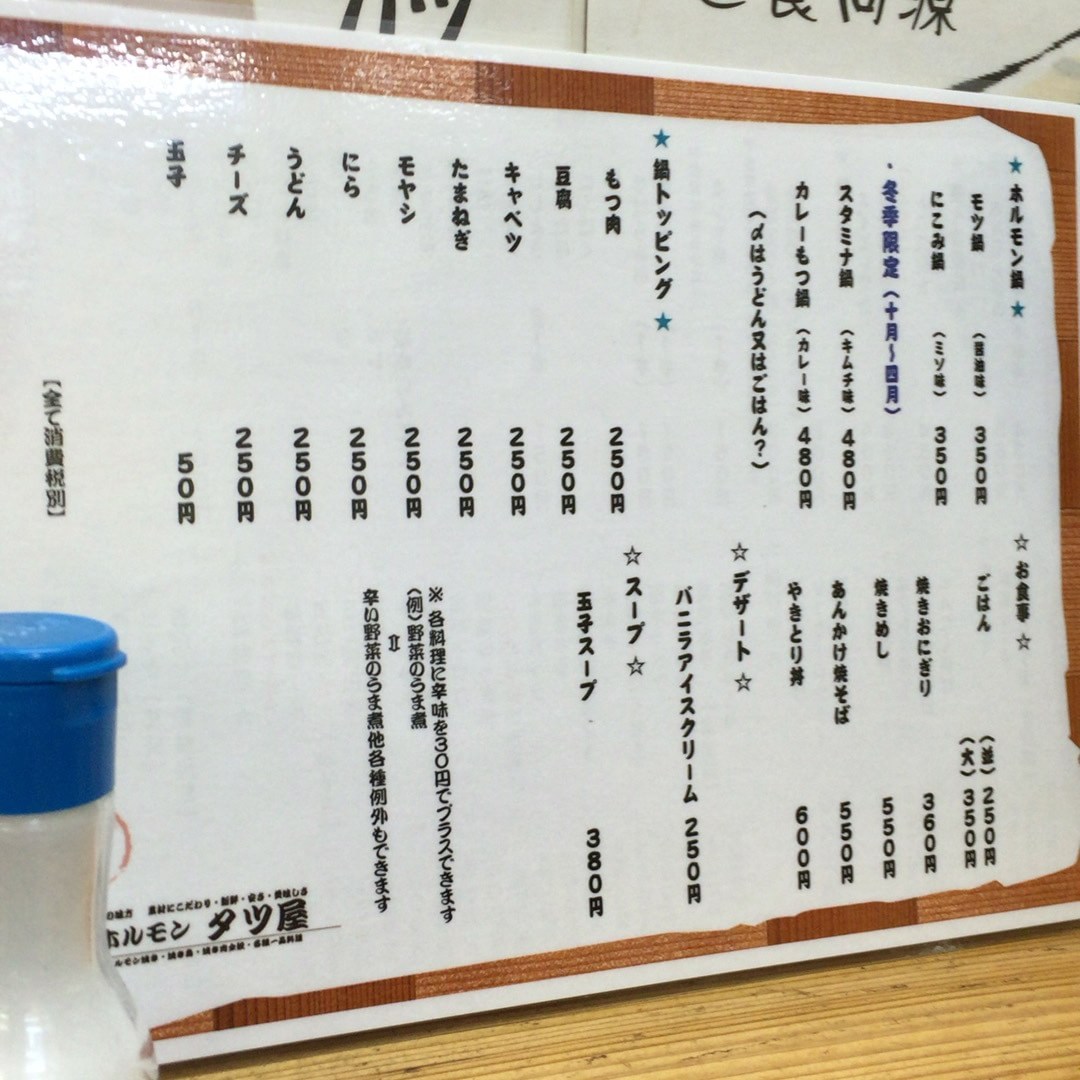 ★ホルモン鍋★
モツ鍋 (醤油味) 350円
にこみ鍋 (ミソ味) 350円
・冬季限定(十月~四月)
スタミナ鍋 (キムチ味) 480円
カレーもつ鍋 (カレー味) 480円
(〆はうどん又はごはん?)
★鍋トッピング★
もつ肉 250円
豆腐 250円
キャベツ 250円
たまねぎ 250円
モヤシ 250円
にら 250円
うどん 250円
チーズ 250円
玉子 50円
【全て消費税別】
☆お食事☆
ごはん (並) 250円
(大) 350円
焼きおにぎり 360円
焼きめし 550円
あんかけ焼そば 550円
やきとり丼 600円
☆デザート☆
バニラアイスクリーム 250円
☆スープ☆
玉子スープ 380円
※各料理に辛味を30円でプラスできます
(例)野菜のうま煮
⇩
辛い野菜のうま煮他各種例外もできます
の味方 素材にこだわり・新鮮・安さ・美味しさ
ホルモン タツ屋
食同源